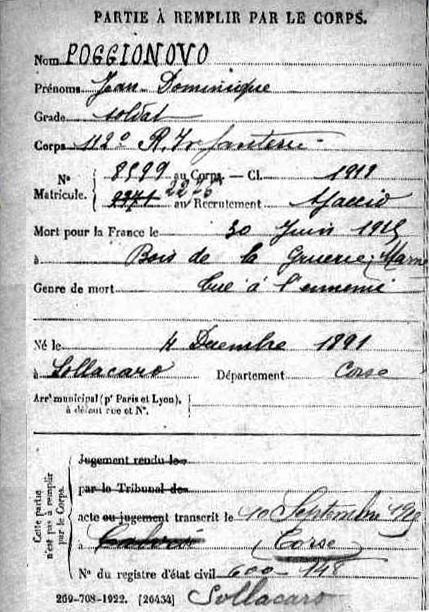 PARTIE À REMPLIR PAR LE CORPS.
Nom POGGIONOVO
Prénoms Jean Dominique
Grade soldat
Corps 112e R. Infanterie
N° Matricule. { 8599 au Corps. — Cl. 1911
2271 2225 au Recrutement Ajaccio
Mort pour la France le 30 Juin 1915
à Bois de la Gruerie, Marne
Genre de mort Tué à l'ennemi
Né le 4 Decembre 1891
à Sollacaro Département Corse
Arr¹ municipal (p¹ Paris et Lyon),
à défaut rue et N°.
Cette partie n'est pas à remplir par le Corps.
Jugement rendu le
par le Tribunal de
acte ou jugement transcrit le 10 Septembre
à (Corse)
N° du registre d'état civil 600-148
Sollacaro
269-708-1922. [26434]